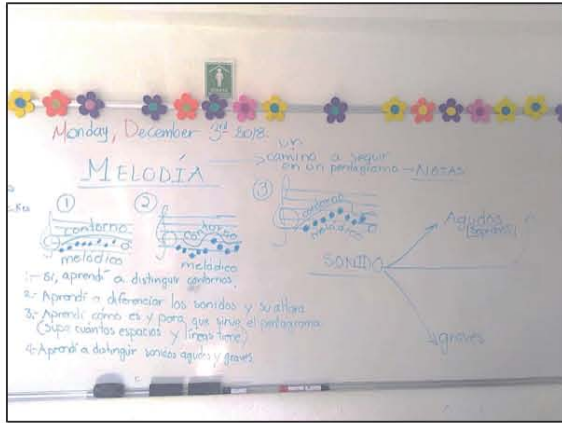 Monday, December 3rd 2018.
MELODÍA
un
camino a seguir
en un pentagrama → NOTAS
1
contorno
melódico
2
contorno
melódico
3
contorno
melódico
SONIDO
Agudos
(soprano)
graves
1.- Si, aprendí a distinguir contornos.
2.- Aprendí a diferenciar los sonidos y su altura
3.- Aprendí cómo es y para que sirve el pentagrama
(Supe cuántos espacios y lineas tiene)
4.- Aprendí a distinguir sonidos agudos y graves